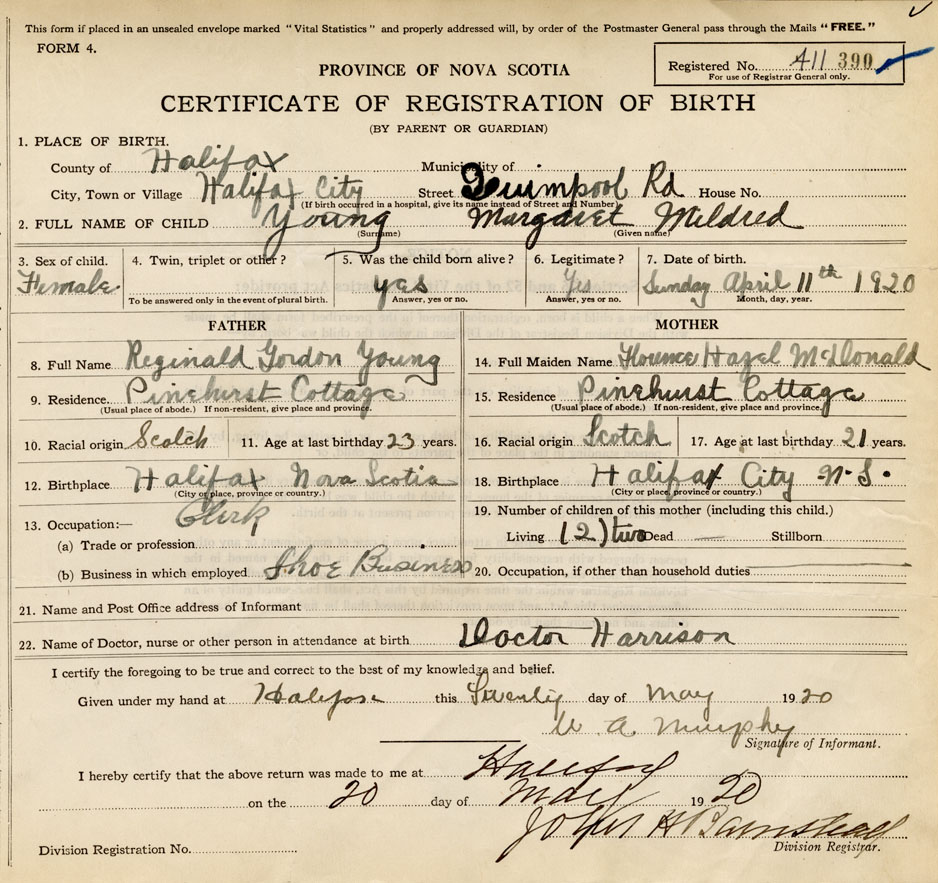 This form if placed in an unsealed envelope marked "Vital Statistics" and properly addressed will, by order of the Postmaster General pass through the Mails "FREE."
FORM 4.
Registered No. 411 390
For use of Registrar General only.
PROVINCE OF NOVA SCOTIA
CERTIFICATE OF REGISTRATION OF BIRTH
(BY PARENT OR GUARDIAN)
1. PLACE OF BIRTH.
County of Halifax Municipality of
City, Town or Village Halifax City Street Quinpool Rd House No.
(If birth occurred in a hospital, give its name instead of Street and Number)
2. FULL NAME OF CHILD Young Margaret Mildred
(Surname) (Given name)
3. Sex of child. 4. Twin, triplet or other? 5. Was the child born alive? 6. Legitimate? 7. Date of birth.
Female yes Yes Sunday April 11th 1920
To be answered only in the event of plural birth. Answer, yes or no. Answer, yes or no. Month, day, year.
FATHER MOTHER
8. Full Name Reginald Gordon Young 14. Full Maiden Name Florence Hazel McDonald
9. Residence. Pinehurst Cottage 15. Residence Pinehurst Cottage
(Usual place of abode.) If non-resident, give place and province. (Usual place of abode.) If non-resident, give place and province.
10. Racial origin Scotch 11. Age at last birthday 23 years. 16. Racial origin Scotch 17. Age at last birthday 21 years.
12. Birthplace Halifax Nova Scotia 18. Birthplace Halifax City N.S.
(City or place, province or country.) (City or place, province or country.)
13. Occupation:— Clerk 19. Number of children of this mother (including this child.)
(a) Trade or profession Living (2) two Dead — Stillborn
(b) Business in which employed Shoe Business 20. Occupation, if other than household duties
21. Name and Post Office address of Informant
22. Name of Doctor, nurse or other person in attendance at birth Doctor Harrison
I certify the foregoing to be true and correct to the best of my knowledge and belief.
Given under my hand at Halifax this Twenty day of May 1920
W. A. Murphy
Signature of Informant.
I hereby certify that the above return was made to me at Halifax
on the 20 day of May 1920
Division Registration No. Division Registrar.